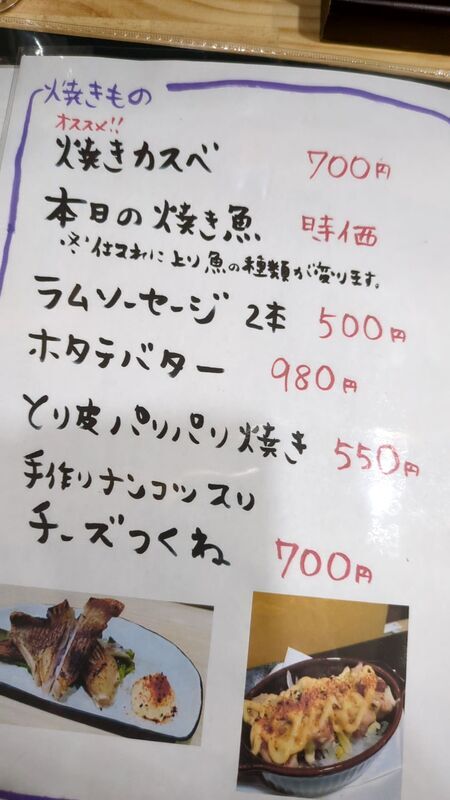 焼きもの
オススメ!!
焼きカスベ 700円
本日の焼き魚 時価
※仕入れに上り魚の種類が変ります。
ラムソーセージ 2本 500円
ホタテバター 980円
とり皮パリパリ焼き 550円
手作りナンコツ入り
チーズつくね 700円